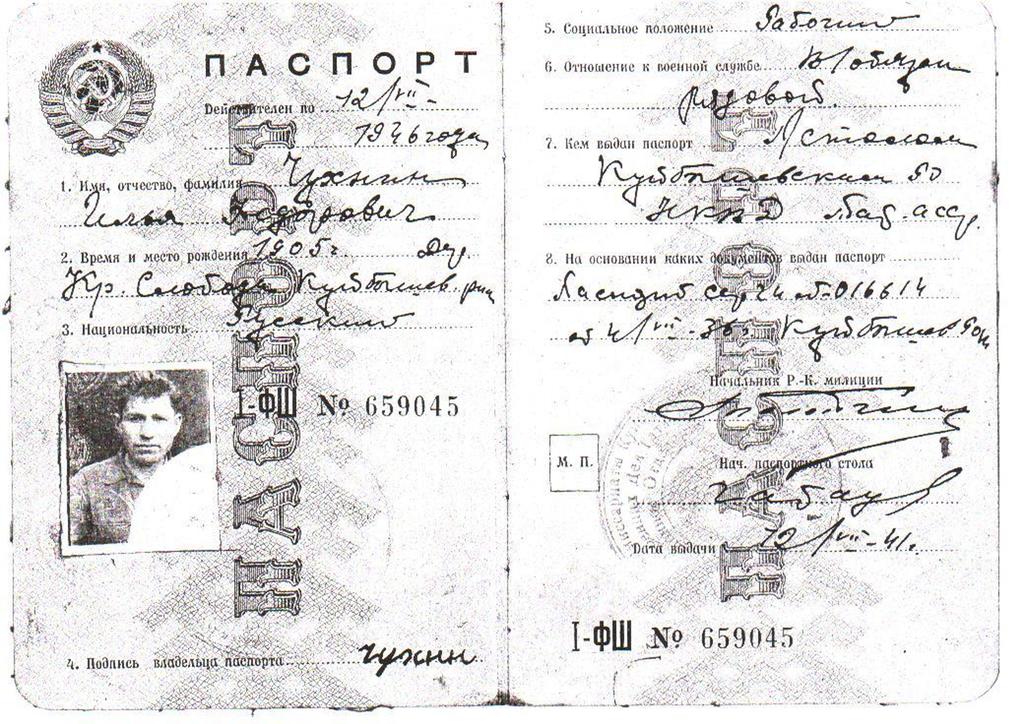 ПАСПОРТ
Действителен по 12/VII-
1946 года
1. Имя, отчество, фамилия Чухнин
Илья Федорович
2. Время и место рождения 1905 г. дер.
Кр. Слобода Куйбышев. р-на
3. Национальность Русский
I-ФШ № 659045
4. Подпись владельца паспорта Чухнин
5. Социальное положение Рабочий
6. Отношение к военной службе В/обязан
рядовой.
7. Кем выдан паспорт П/столом
Куйбышевским РО
НКВД Тат. асср.
8. На основании каких документов выдан паспорт
Паспорт сер. № 016614
от 4/VII-36 г. Куйбышев
Начальник Р.-К. милиции
М. П.
Нач. паспортного стола
Дата выдачи 12/VII-41 г.
I-ФШ № 659045
ПАСПОРТ
ПАСПОРТ